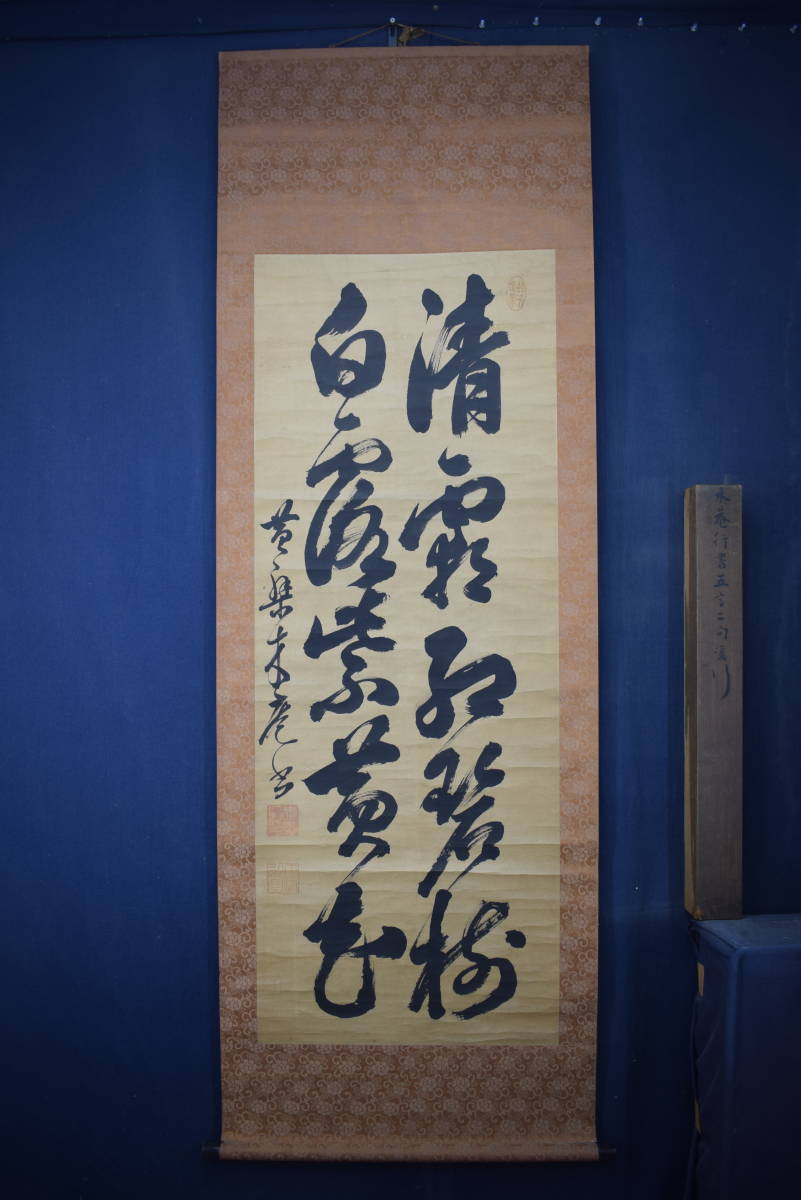 清霜紅碧樹
白露紫黄花
黄檗木庵書
木菴行書五言二句